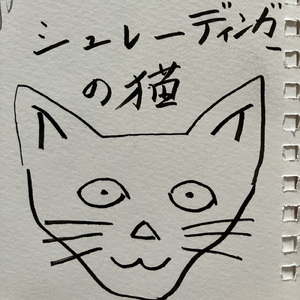 シュレーディンガー
の猫